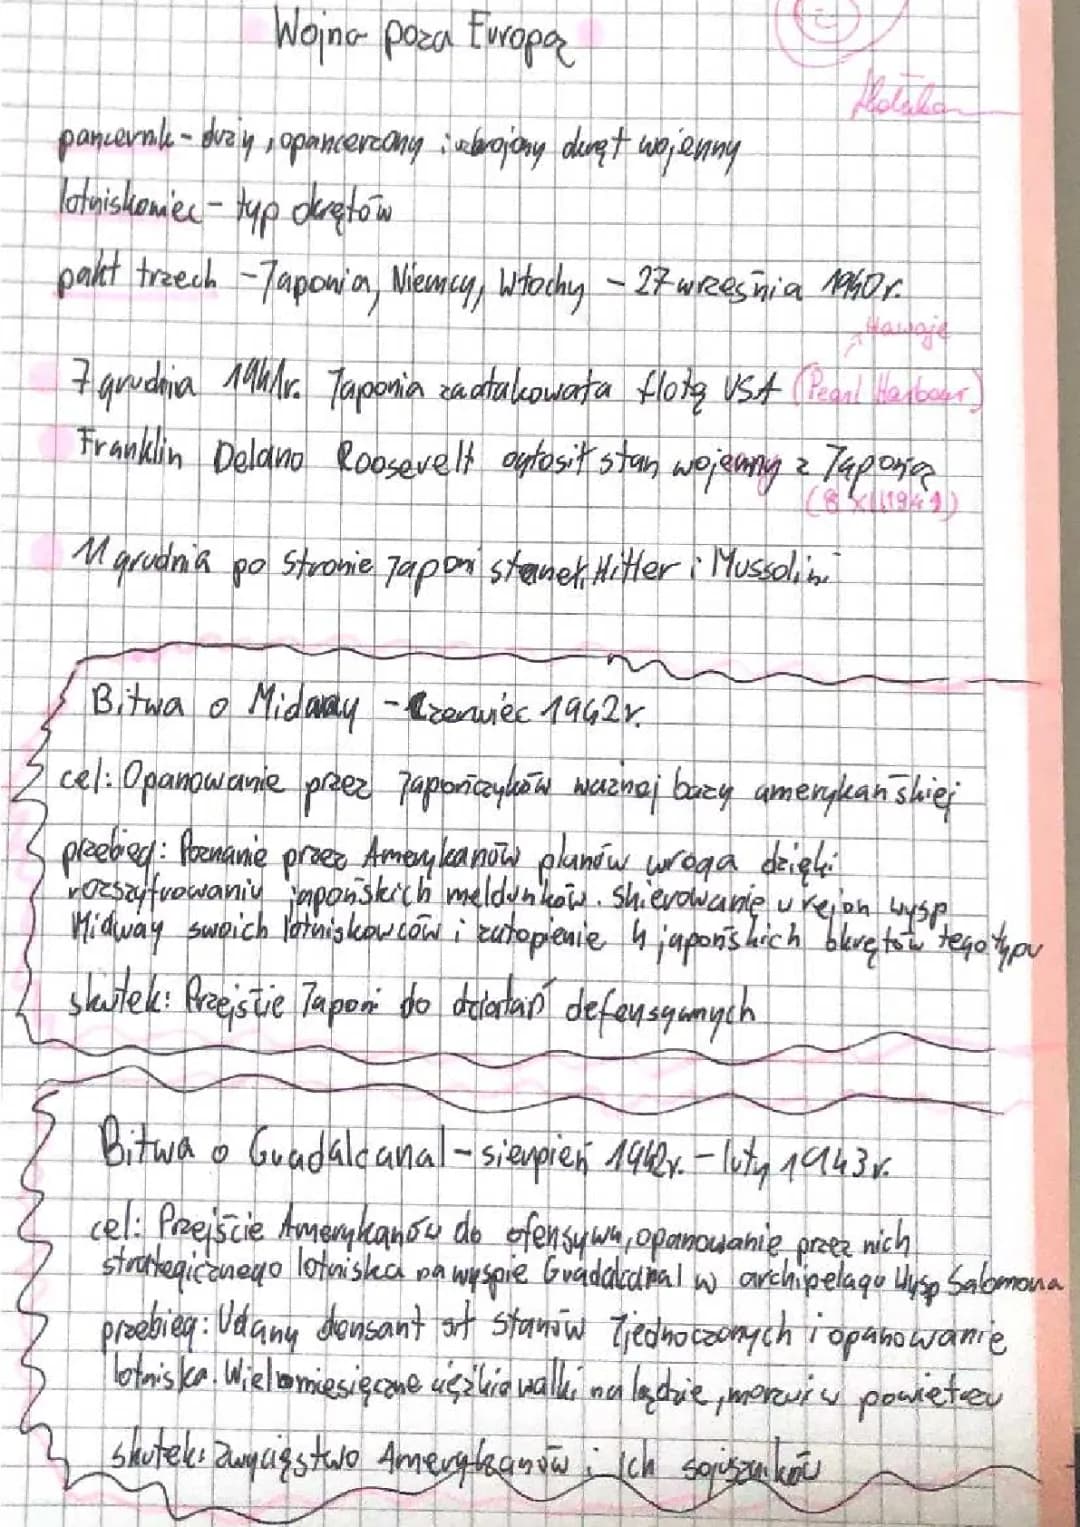 Wojna poza Europą
Notatka
pancernik - duży, opancerzony i uzbrojony okręt wojenny
lotniskowiec - typ okrętów
pakt trzech - Japonia, Niemcy, Włochy - 27 września 1940r.
Hawaje
7 grudnia 1941r. Japonia zaatakowała flotę USA (Pearl Harbour)
Franklin Delano Roosevelt ogłosił stan wojenny z Japonią
(8 XII 1941)
11 grudnia po stronie Japoni stanęli Hitler i Mussolini
Bitwa o Midway - Czerwiec 1942r.
cel: Opanowanie przez Japończyków ważnej bazy amerykańskiej
przebieg: Poznanie przez Amerykanów planów wroga dzięki
rozszyfrowaniu japońskich meldunków. Skierowanie w rejon wysp
Midway swoich lotniskowców i zatopienie 4 japońskich okrętów tego typu
skutek: Przejście Japoni do działań defensywnych
Bitwa o Guadalcanal - sierpień 1942r. - luty 1943r.
cel: Przejście Amerykanów do ofensywy, opanowanie przez nich
strategicznego lotniska na wyspie Guadalcanal w archipelagu Wysp Salomona
przebieg: Udany densant Stanów Zjednoczonych i opanowanie
lotniska. Wielomiesięczne ciężkie walki na lądzie, morzu i w powietrzu
skutek: zwycięstwo Amerykanów i ich sojuszników